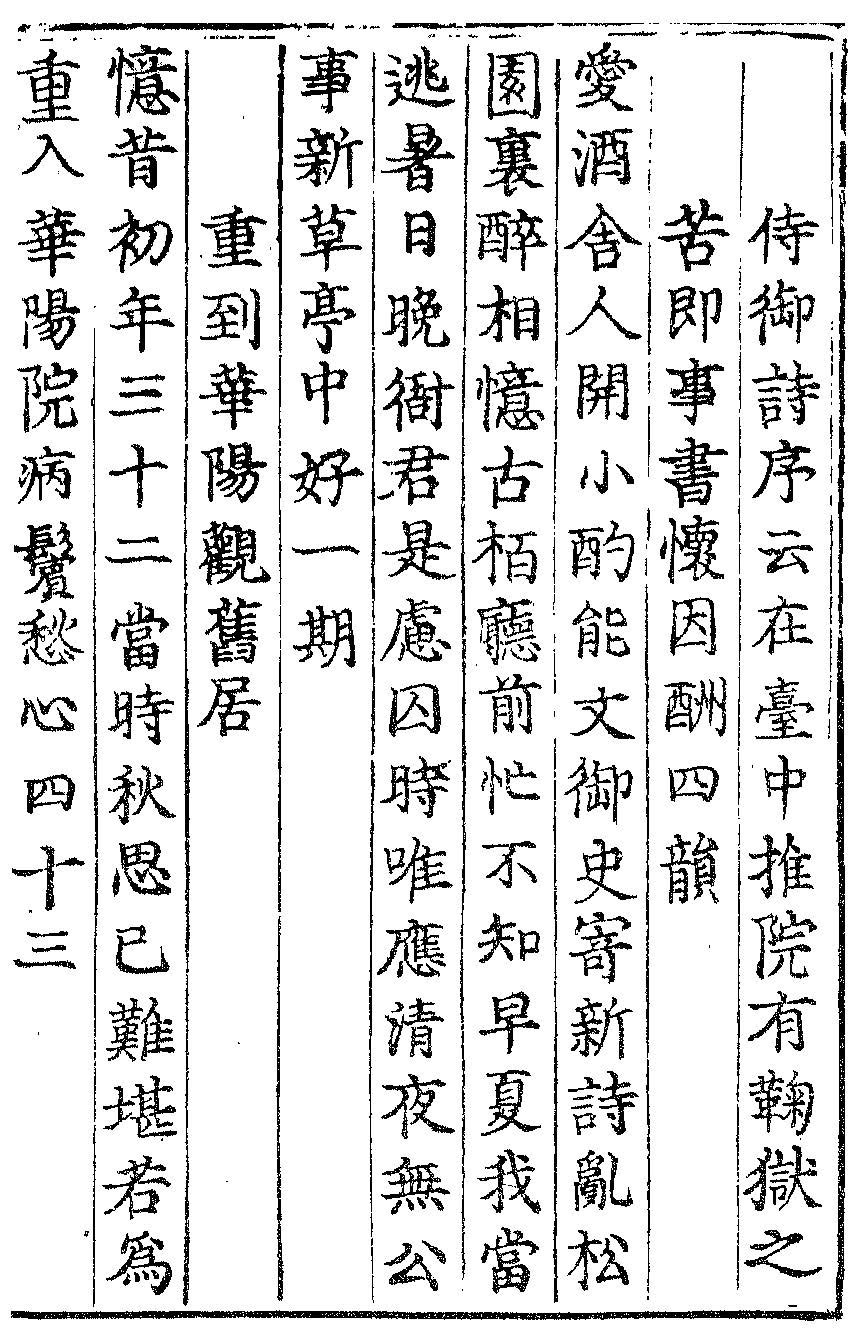 侍御詩序云在臺中推院有鞠獄之
苦即事書懷因酬四韻
愛酒舍人開小酌能文御史寄新詩亂松
園裏醉相憶古栢廳前忙不知早夏我當
逃暑日晚衙君是慮囚時唯應清夜無公
事新草亭中好一期
重到華陽觀舊居
憶昔初年三十二當時秋思已難堪若爲
重入華陽院病鬢愁心四十三